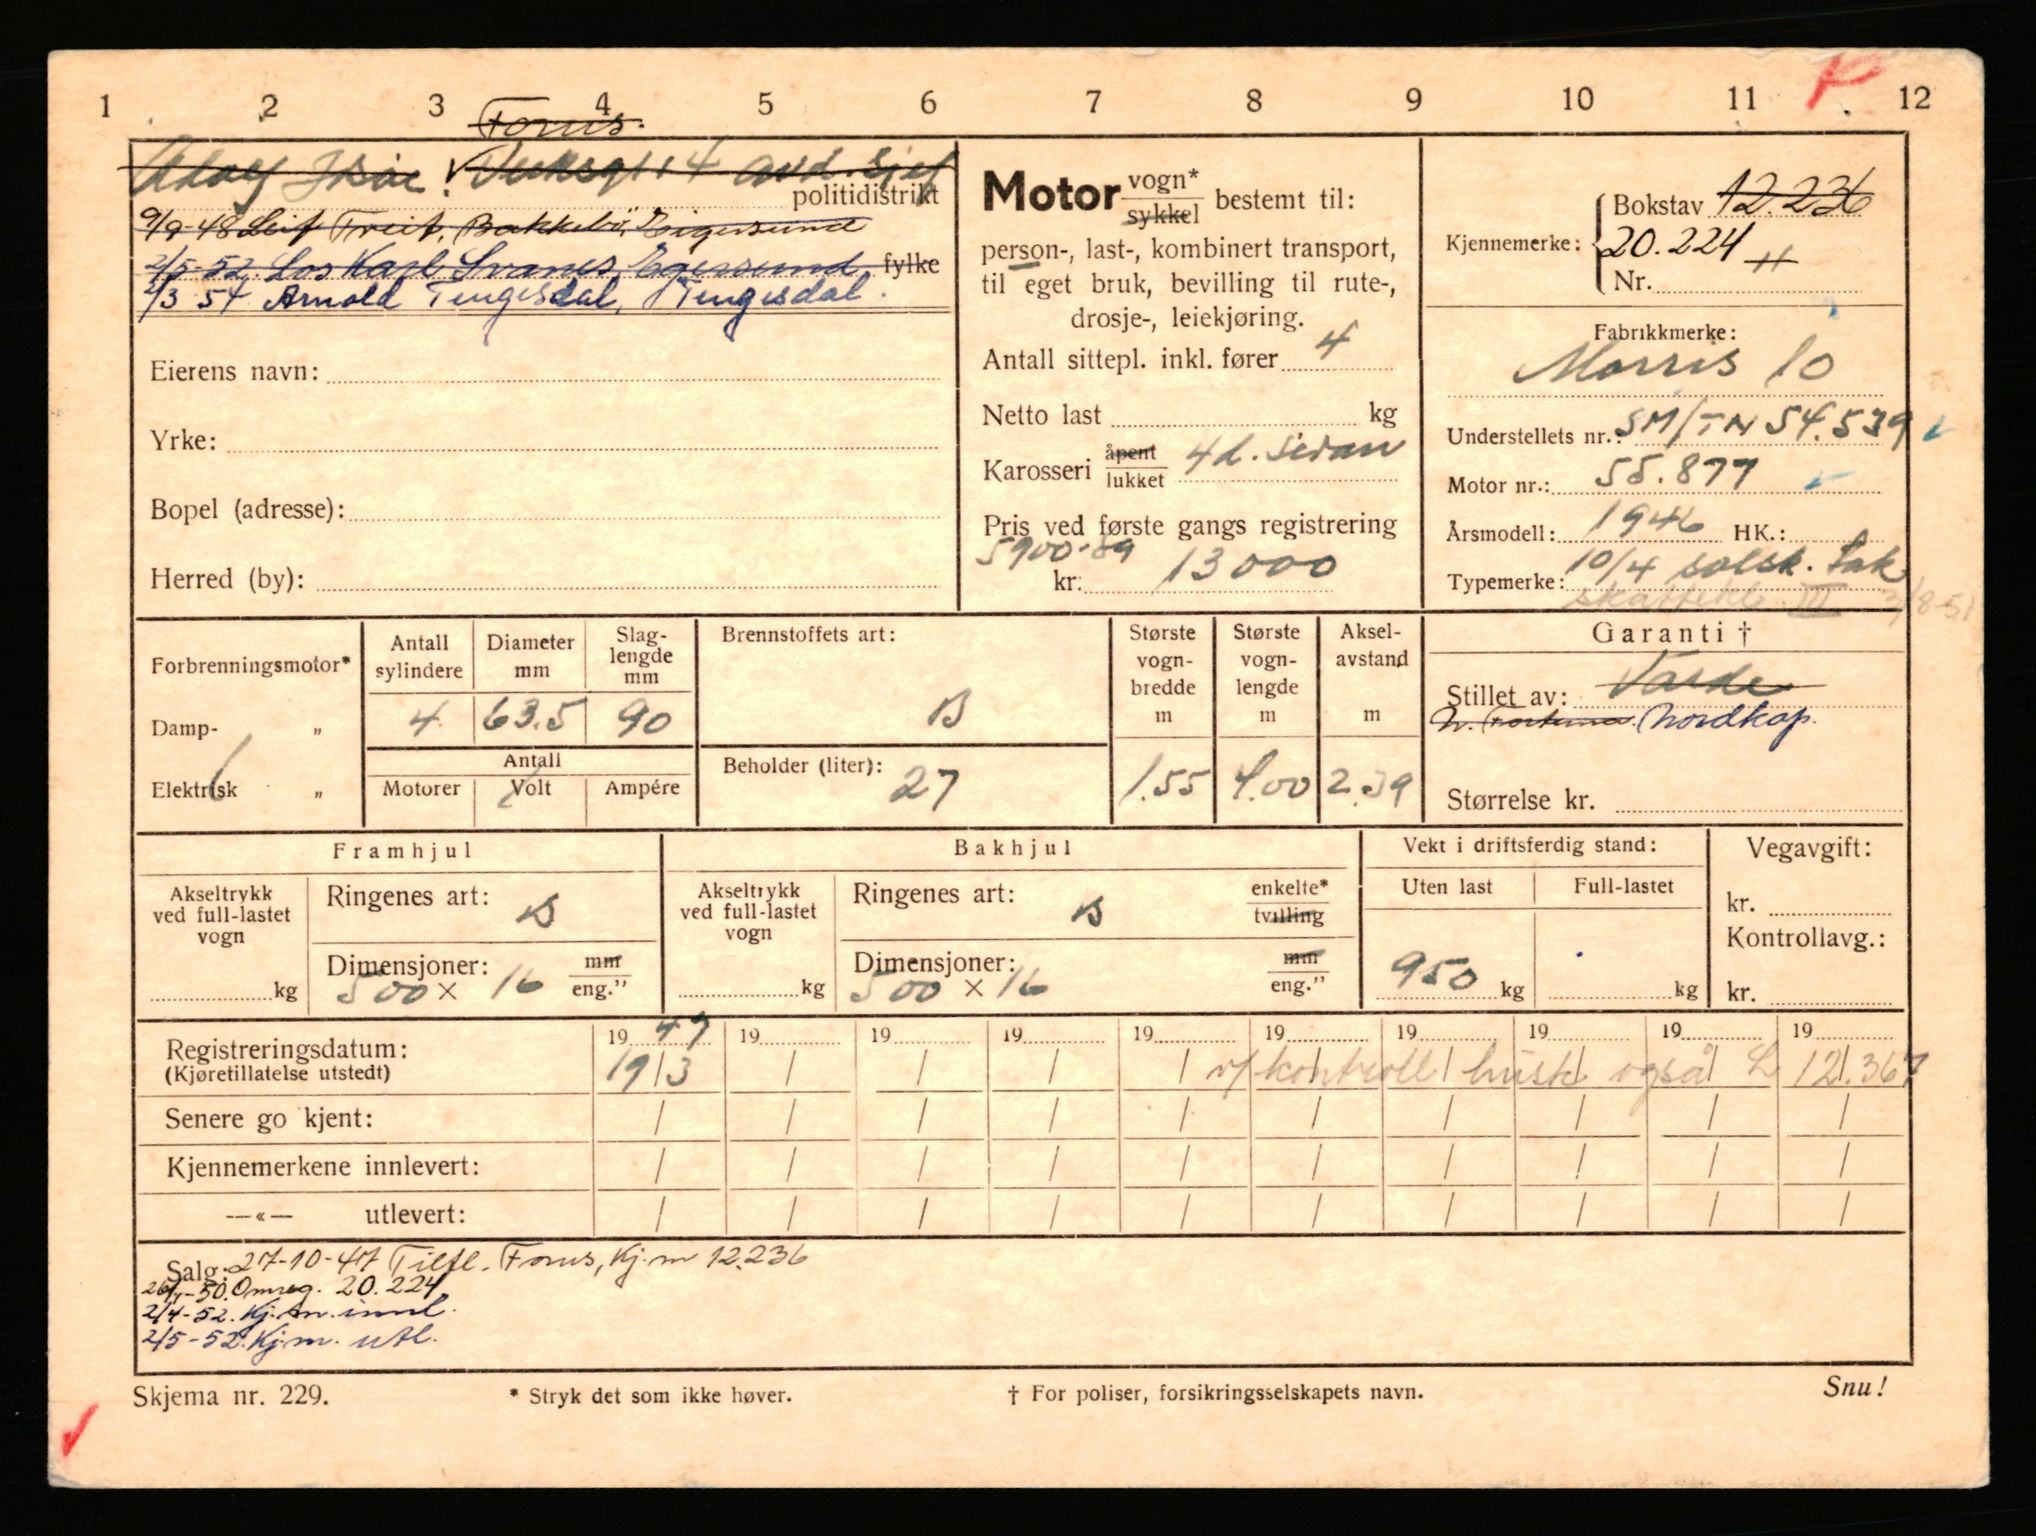 1 2 3 4 5 6 7 8 9 10 11 12
Forus.
politidistrikt
9/9-48 Leif Treit, Bakkebö, Eigersund
2/5-52. Los Karl Svanes, Egersund, fylke
2/3 54 Arnold Tengesdal, Tengesdal.
Eierens navn:
Yrke:
Bopel (adresse):
Herred (by):
Motor vogn* sykkel bestemt til:
person-, last-, kombinert transport,
til eget bruk, bevilling til rute-,
drosje-, leiekjøring.
Antall sittepl. inkl. fører 4
Netto last kg
Karosseri åpent lukket 4 d. sedan
Pris ved første gangs registrering
5900.89
kr. 13000
Kjennemerke: Bokstav 12.236
20.224
Nr.
Fabrikkmerke:
Morris 10
Understellets nr.: SM/TN 54.539
Motor nr.: 55.877
Årsmodell: 1946 HK.:
Typemerke: 10/4 solsk. tak
skattekl. III 3/8-51
Forbrenningsmotor*
Damp- „
Elektrisk „
Antall sylindere 4
Diameter mm 63.5
Slaglengde mm 90
Antall
Motorer Volt Ampére
Brennstoffets art: B
Beholder (liter): 27
Største vognbredde m 1.55
Største vognlengde m 4.00
Akselavstand m 2.39
Garanti †
Stillet av: Varde
Nordkap.
Størrelse kr.
Framhjul
Akseltrykk ved full-lastet vogn kg
Ringenes art: B
Dimensjoner: mm eng."
500 × 16
Bakhjul
Akseltrykk ved full-lastet vogn kg
Ringenes art: B enkelte* tvilling
Dimensjoner: mm eng."
500 × 16
Vekt i driftsferdig stand:
Uten last Full-lastet
950 kg kg
Vegavgift:
kr.
Kontrollavg.:
kr.
19 47 19 19 19 19 19 19 19 19 19
Registreringsdatum: 19/3 / / / / v/ kontroll husk også L 12.367
(Kjøretillatelse utstedt)
Senere go kjent: / / / / / / / / / /
Kjennemerkene innlevert: / / / / / / / / / /
—«— utlevert: / / / / / / / / / /
Salg: 27-10-47 Tilfl. Forus, Kj.m 12.236
-50. Omreg. 20.224
2/4-52. Kj.m. innl.
2/5-52. Kj.m. utl.
Skjema nr. 229.
* Stryk det som ikke høver.
† For poliser, forsikringsselskapets navn.
Snu!